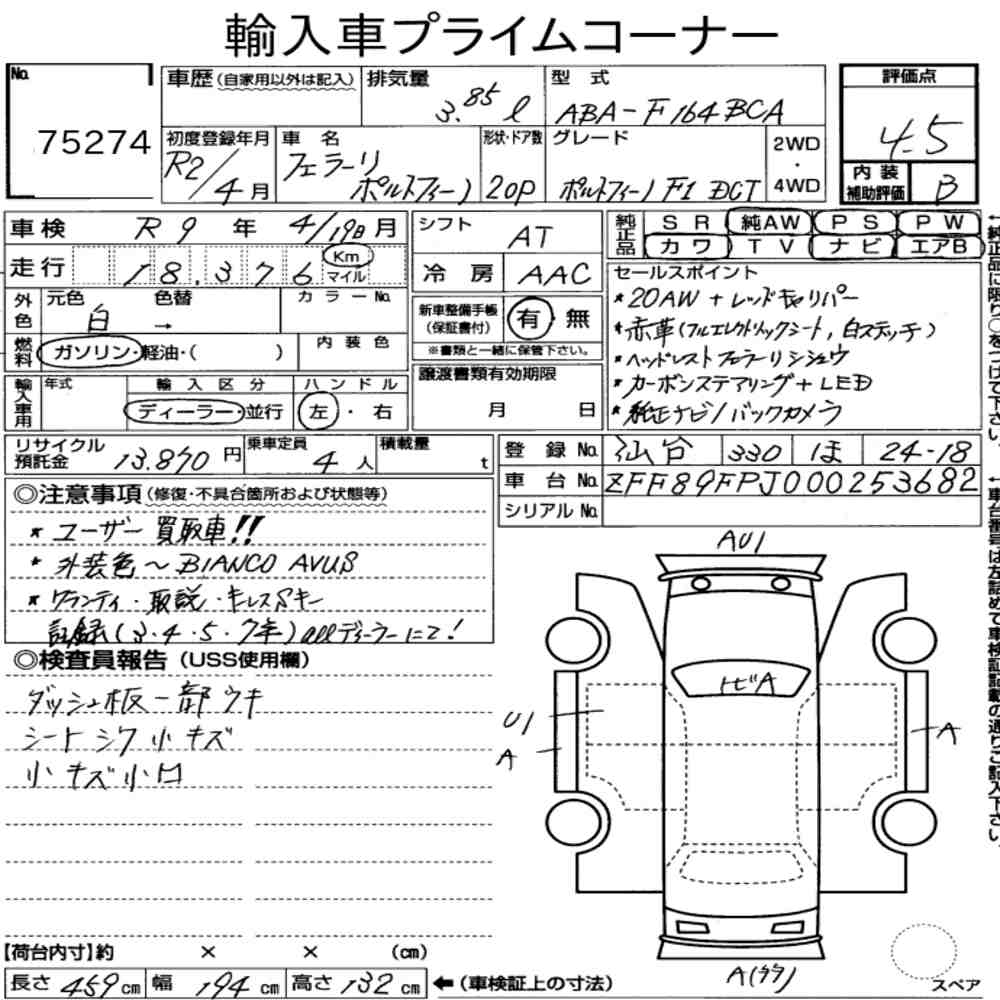 輸入車プライムコーナー
No. 75274
車歴 (自家用以外は記入) 排気量 3.85 ℓ 型式 ABA-F164BCA
初度登録年月 R2/4月 車名 フェラーリ ポルトフィーノ 形状・ドア数 2OP グレード ポルトフィーノ F1 DCT 2WD・4WD
評価点 4.5
内装補助評価 B
車検 R9年 4/19日月
走行 18.376 Km マイル
外色 元色 白 色替 → カラーNo.
燃料 ガソリン・軽油・( ) 内装色
輸入車用 年式 輸入区分 ディーラー・並行 ハンドル 左・右
シフト AT
冷房 AAC
新車整備手帳(保証書付) 有・無
※書類と一緒に保管下さい。
譲渡書類有効期限 月 日
純正品 SR 純AW PS PW
カワ TV ナビ エアB
セールスポイント
*20AW+レッドキャリパー
*赤革(フルエレクトリックシート,白ステッチ)
*ヘッドレストフェラーリシシュウ
*カーボンステアリング+LED
*純正ナビ/バックカメラ
←純正品に限り○をつけて下さい。
リサイクル預託金 13.870円 乗車定員 4人 積載量 t
登録No. 仙台 330 ほ 24-18
車台No. ZFF89FPJ000253682
シリアルNo.
←車台番号は左詰めで車検証記載の通りご記入下さい。
◎注意事項(修復・不具合箇所および状態等)
*ユーザー買取車!!
*外装色〜BIANCO AVUS
*ワランティ・取説・キレスSキー
記録(3・4・5・7年)allディーラーにて!
◎検査員報告(USS使用欄)
ダッシュ板一部ウキ
シートシワ小キズ
小キズ小凹
AU1
トビA
U1
A
A
A(ララ)
スペア
【荷台内寸】約 × × (cm)
長さ 459cm 幅 194cm 高さ 132cm ←(車検証上の寸法)